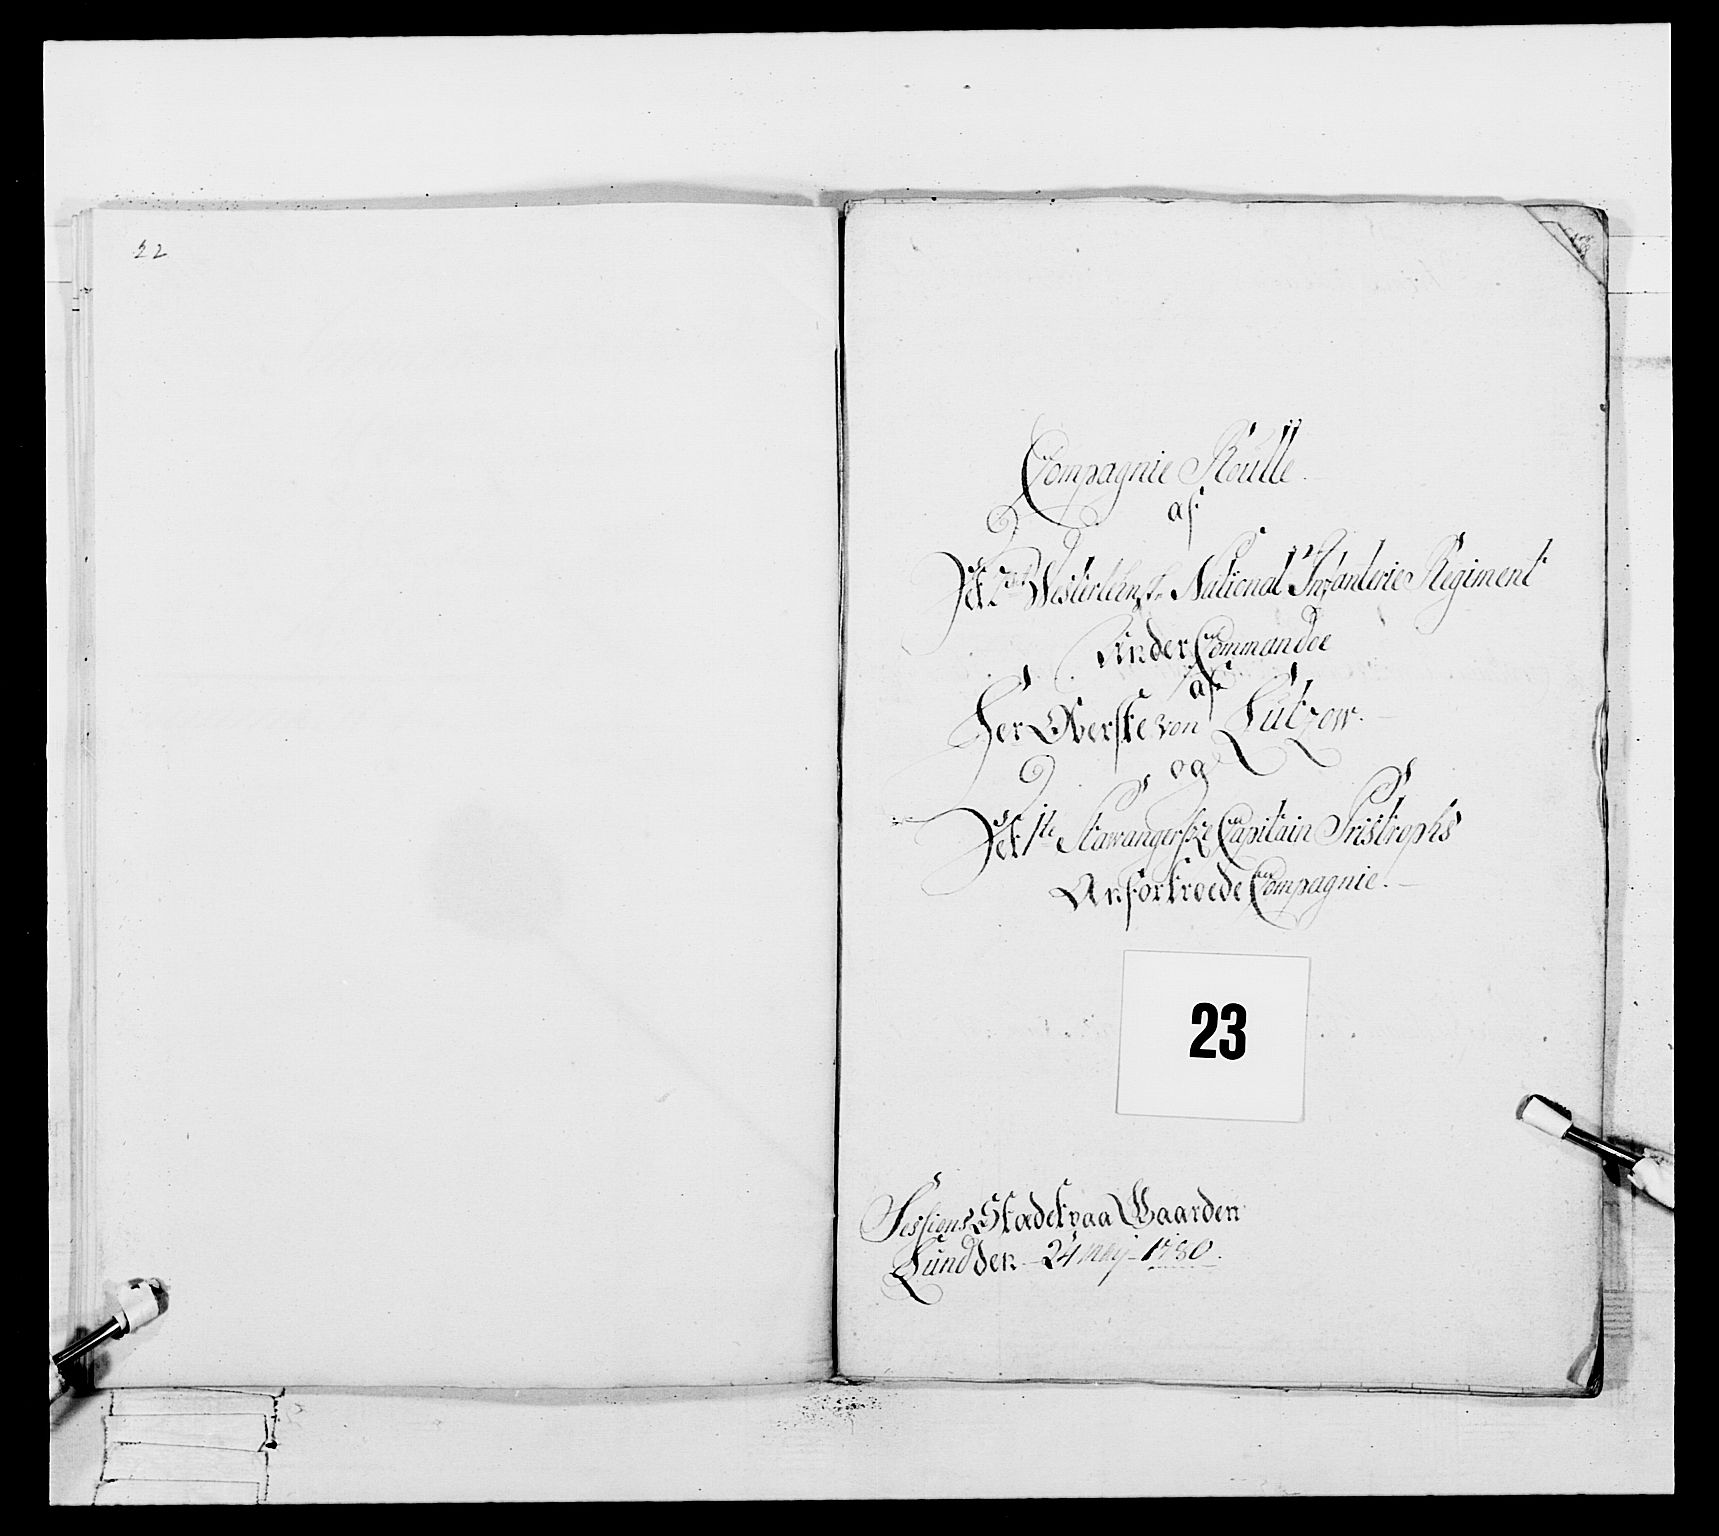 22
Compagnie Roulle
af
Det 2det Westerlehnske National Infanterie Regiment
Under Commandoe
af
Her Oberste von Lützow.
og
Det 1te Stavangerske Capitain Tristrophs
Anfortroede Compagnie.
23
Sessions Stædet paa Gaarden
Lund den 24 Maij 1780.